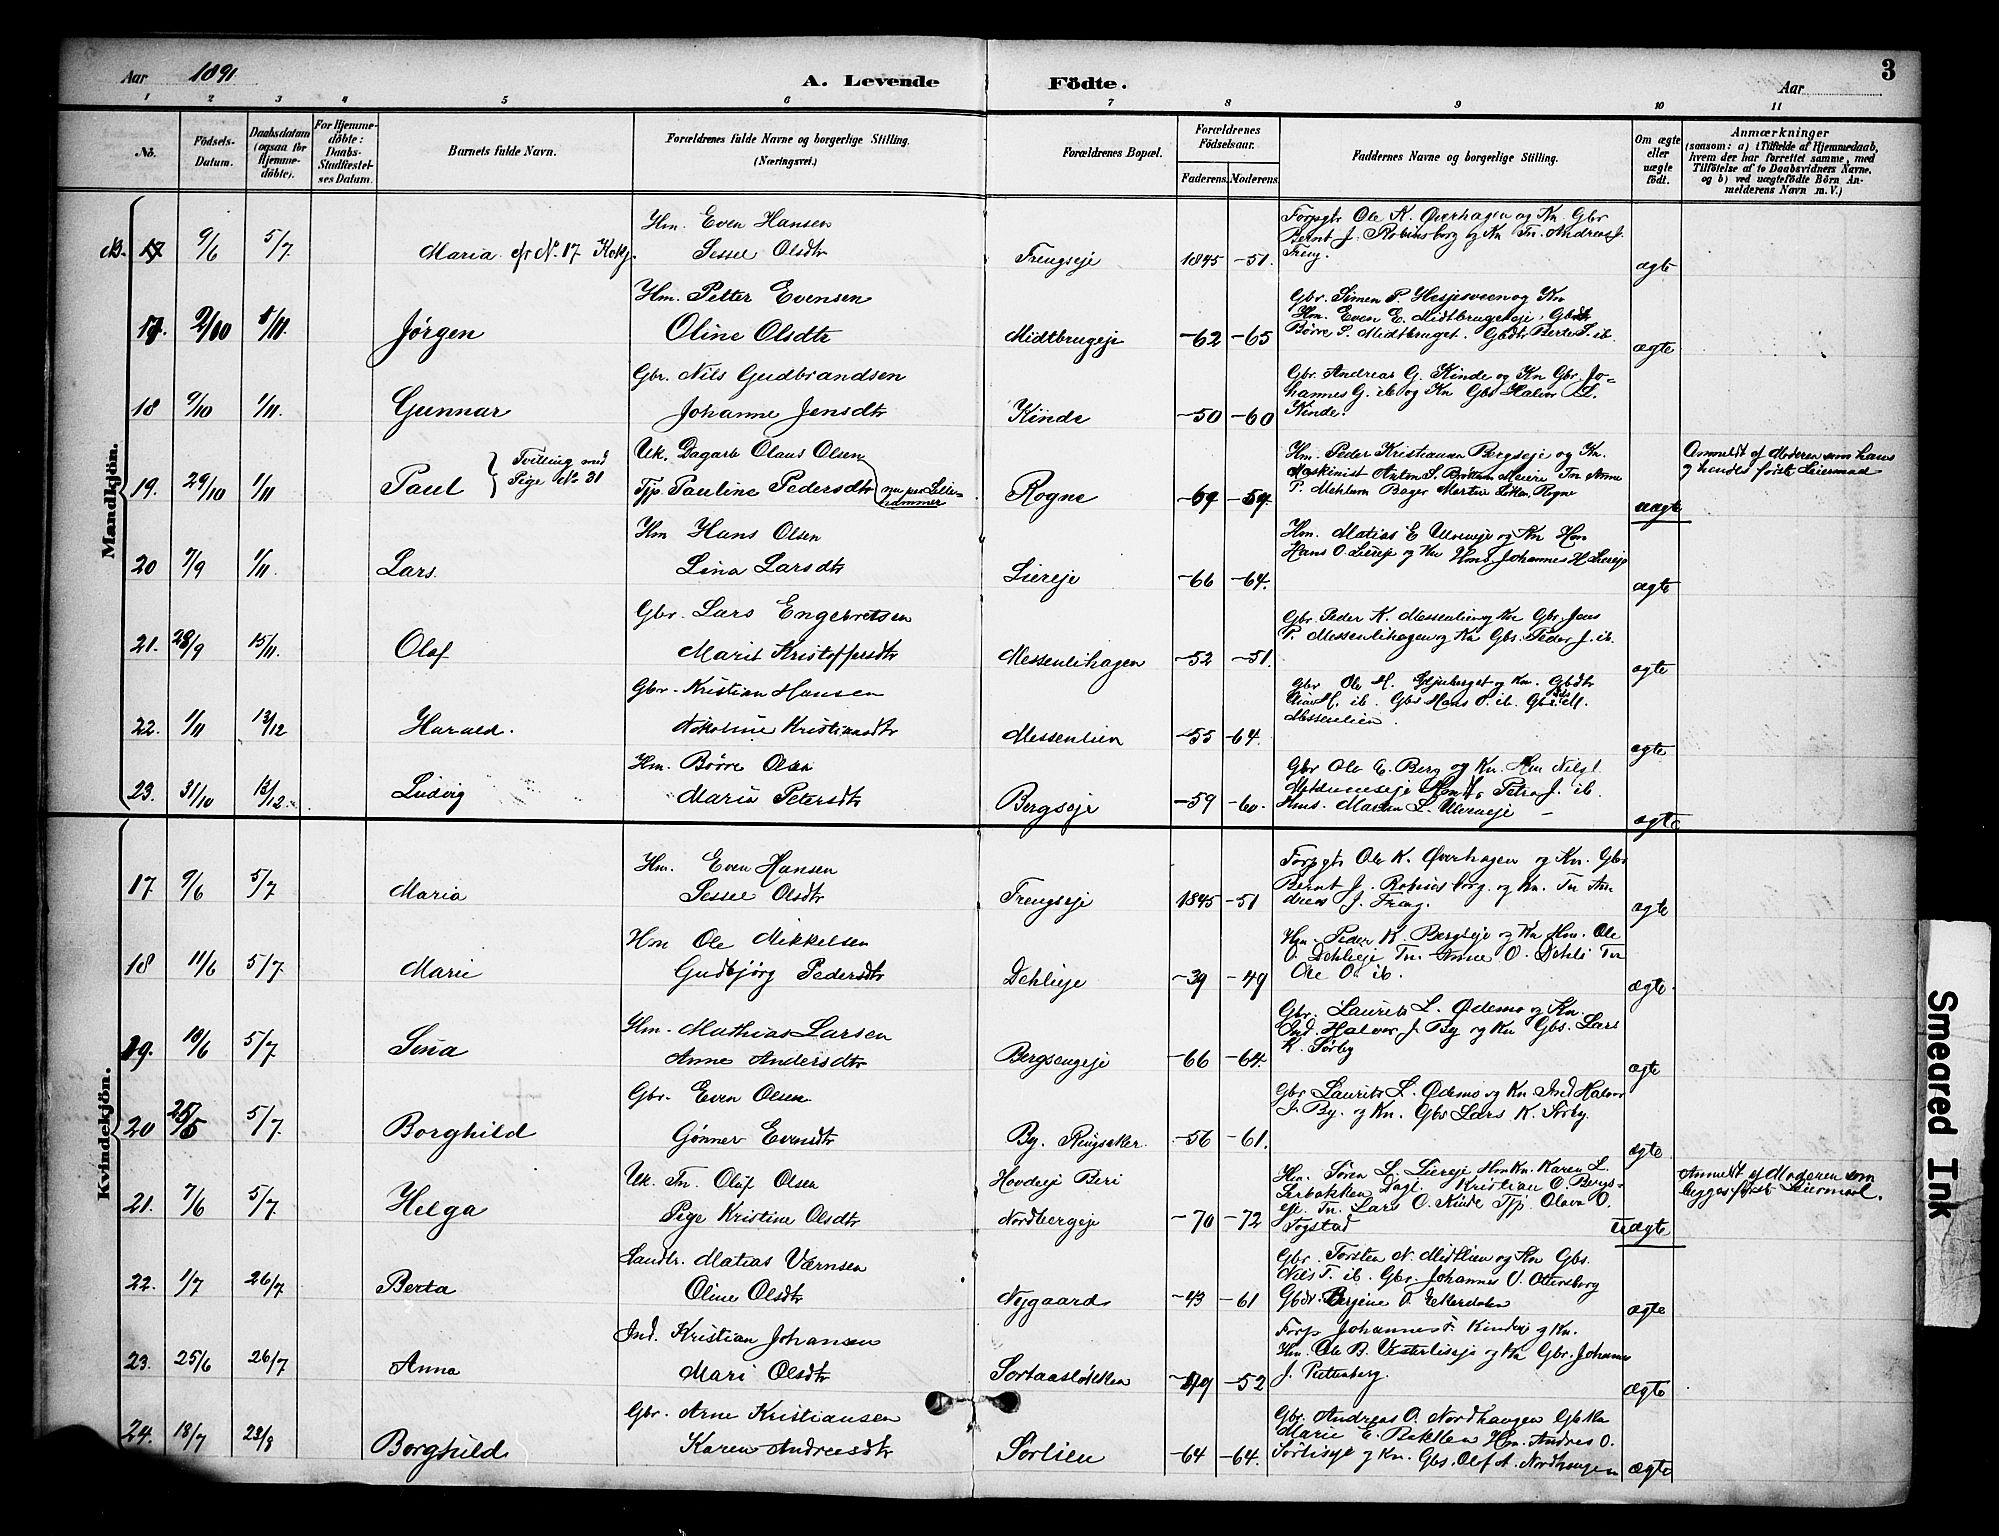 Aar 1891 A. Levende Födte. Aar 3
1 2 3 4 5 6 7 8 9 10 11
No. Födsels-Datum. Daabsdatum (ogsaa for Hjemme-döbte). For Hjemme-döbte: Daabs-Stadfæstel-ses Datum. Barnets fulde Navn. Forældrenes fulde Navne og borgerlige Stilling. (Næringsvei.) Forældrenes Bopæl. Forældrenes Födselsaar. Faderens. Moderens. Faddernes Navne og borgerlige Stilling. Om ægte eller uægte födt. Anmærkninger (saasom: a) i Tilfælde af Hjemmedaab, hvem der har forrettet samme, med Tilföielse af to Daabsvidners Navne. og b) ved uægtefödte Börn Anmelderens Navn m.V.)
Mandkjön.
17 9/6 5/7 Maria cfr No. 17 Kvkj. Hm. Even Hansen
Sessel Olsdtr Frengseje 1845 -51. Forpgbr Ole K. Øverhagen og Kn. Gbr
Bernt J. Robinsborg og Kn Tn. Andreas J.
Freng. ægte
17. 2/10 1/11 Jørgen Hm. Petter Evensen
Oline Olsdtr Midtbrugeje -62 -65 Gbr. Simen P. Hesjesveen og Kn
Hm. Even E. Midtbrugetseje. Gbdtr
Børre S. Midtbruget. Gbdtr Berte S. ib. ægte
18 9/10 1/11. Gunnar Gbr. Nils Gudbrandsen
Johanne Jensdtr Kinde -50 -60 Gbr. Andreas G. Kinde og Kn Gbr Jo-
hannes G. ib og Kn Gbs Halvor L.
Kinde. ægte
19. 29/10 1/11 Paul { Tvilling med
Pige No 31 Uk. Dagarb Olaus Olsen
Tjp. Pauline Pedersdtr nu paa Lille-
hammer Rogne -69 -59. Hm. Peder Kristiansen Bergseje og Kn.
Maskinist Anton S. Brøttum Meieri Tn Anne
P. Mehlum Bager Martin Rogne uægte Anmeldt af Moderen som hans
og hendes første Leiermaal
20 7/9 1/11. Lars. Hm Hans Olsen
Lina Larsdtr Liereje -66 -64. Hm. Matias E. Ulvenseje og Kn Hm
Hans O. Liereje og Kn Hmd. Johannes H. Liereje ægte
21. 28/9 15/11. Olaf Gbr. Lars Engebretsen
Marit Kristoffersdtr Messenlihagen -52 -51. Gbr. Peder K. Messenlien og Kn Gbr. Jens
P. Messenlihagen og Kn Gbs. Peder J. ib. ægte
22. 1/11 13/12 Harald. Gbr. Kristian Hansen
Nikoline Kristiansdtr Messenlien -55 -64. Gbr Ole M. og Kn. Gbdtr
M. ib. Gbs Hans O. ib. Gbs M.
Messenlien. ægte
23. 31/10 13/12. Ludvig Hm. Børre Olsen
Maria Petersdtr Bergseje -59 -60. Gbr Ole E. Berg og Kn. Hm Nils L.
Mehlumseje Petra J. ib.
Hms. Martin L. Ulvenseje ægte
Kvindekjön.
17 9/6 5/7 Maria Hm. Even Hansen
Sessel Olsdtr Frengseje 1845 -51 Forpgbr Ole K. Øverhagen og Kn. Gbr
Bernt J. Robinsborg. og Kn. Tn An-
dreas J. Freng. ægte
18 11/6 5/7. Marie Hm Ole Mikkelsen
Gudbjørg Pedersdtr Dehlieje -39 -49 Hm. Peder K. Bergseje og Kn Hm. Ole
O. Dehlieje Tn. Anne O. Dehli Tn
Ole O. ib. ægte.
19. 10/6 5/7 Sina Hm. Mathias Larsen
Anne Andersdtr Bergsengeje -66 -64. Gbr. Laurits L. Ødemo og Kn.
Ind. Halvor J. By og Kn Gbs. Lars
K. Sørby ægte
20 25/5 5/7. Borghild Gbr. Even Olsen
Gønner Evensdtr By. Ringsaker. -56 -61. Gbr Laurits L. Ødemo og Kn Ind Halvor
J. By. og Kn. Gbs Lars K. Sørby. ægte.
21. 7/6 5/7. Helga Uk. Tn. Oluf Olsen
Pige Kristine Olsdtr Hovdseje Biri
Nordbergeje -70 -72 Hm. Søren L. Liereje Hm Kn. Karen L.
Serbakken Dagl. Kristian O. Bergs-
eje. Tn. Lars O. Kinde Tjp. Olava O.
Fogstad Uægte Anmeldt af Moderen som
begges første Leiermaal.
22. 1/7 26/7 Berta Landh. Matias Værnsen
Oline Olsdtr Nygaard -43 -61 Gbr. Torsten N. Midtlien og Kn Gbs.
Nils T. ib. Gbr. Johannes O. Ottersborg
Gbdtr. Berjine O. Ekerdalen ægte
23. 25/6 26/7 Anna Ind. Kristian Johansen
Mari Olsdtr Sortaasløkken -49 -52 Forp Johannes F. Kindeje og Kn.
Hm. Ole B. Vesterlieeje og Kn Gbr. Johannes
J. Rettenberg. ægte
24. 18/7 23/8 Borghild Gbr. Arne Kristiansen
Karen Andreasdtr Sørlien -64 -64. Gbr. Andreas O. Nordhaugen Gbkn
Marie E. Bakken Hm. Andres O.
Sørlieeje og Kn. Gbs. Olof A. Nordhaugen ægte
Smeared Ink